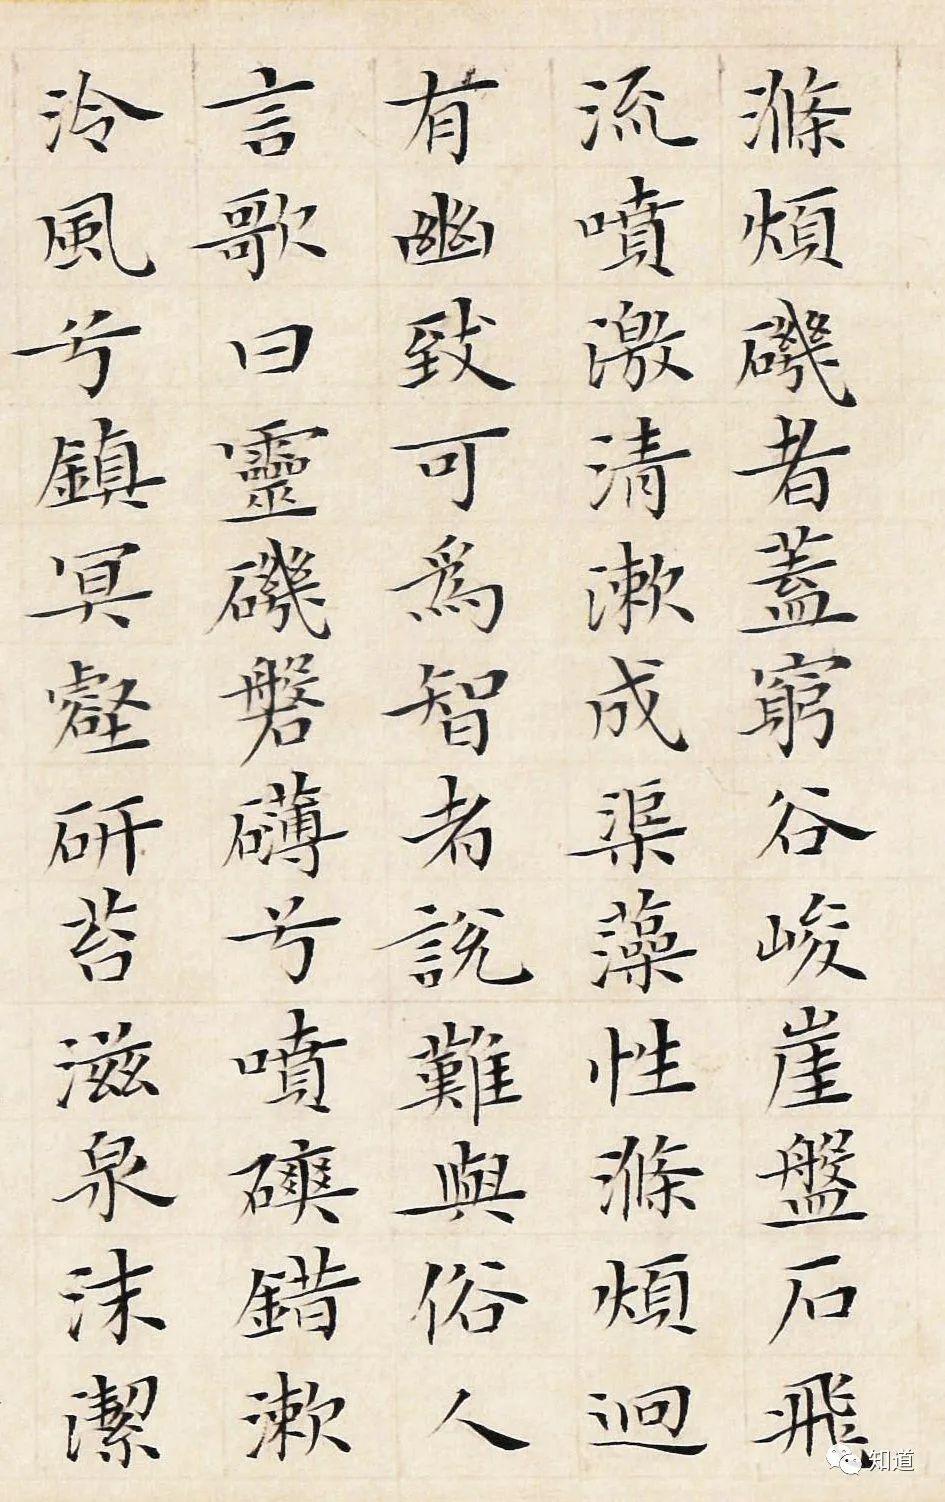 滌煩磯者蓋窮谷峻崖盤石飛
流噴激清漱成渠藻性滌煩迴
有幽致可為智者說難與俗人
言歌曰靈磯磐礴兮噴礇錯漱
泠風兮鎮冥壑研苔滋泉沫潔
知道